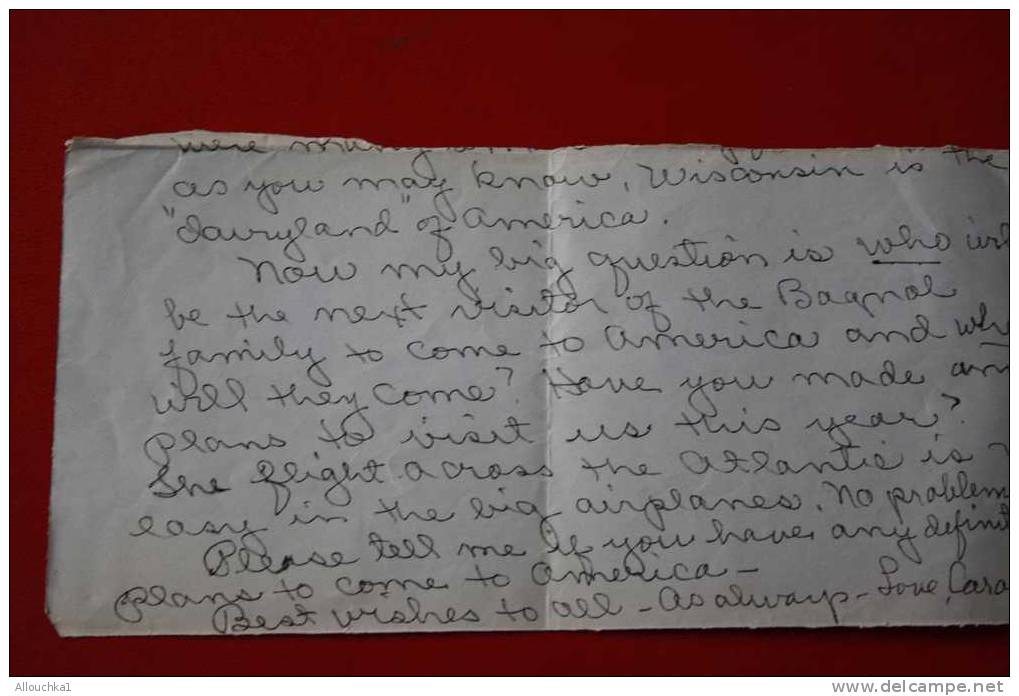 were many
as you may know, Wisconsin is the
"dairyland" of America.
Now my big question is who wil
be the next visitor of the Bagnol
family to come to America and whe
will they come? Have you made an
plans to visit us this year?
The flight across the Atlantic is
easy in the big airplanes. No problem
Please tell me if you have any definit
plans to come to America -
Best wishes to all - As always - Love, Cara
Allouchka1
delcampe.net